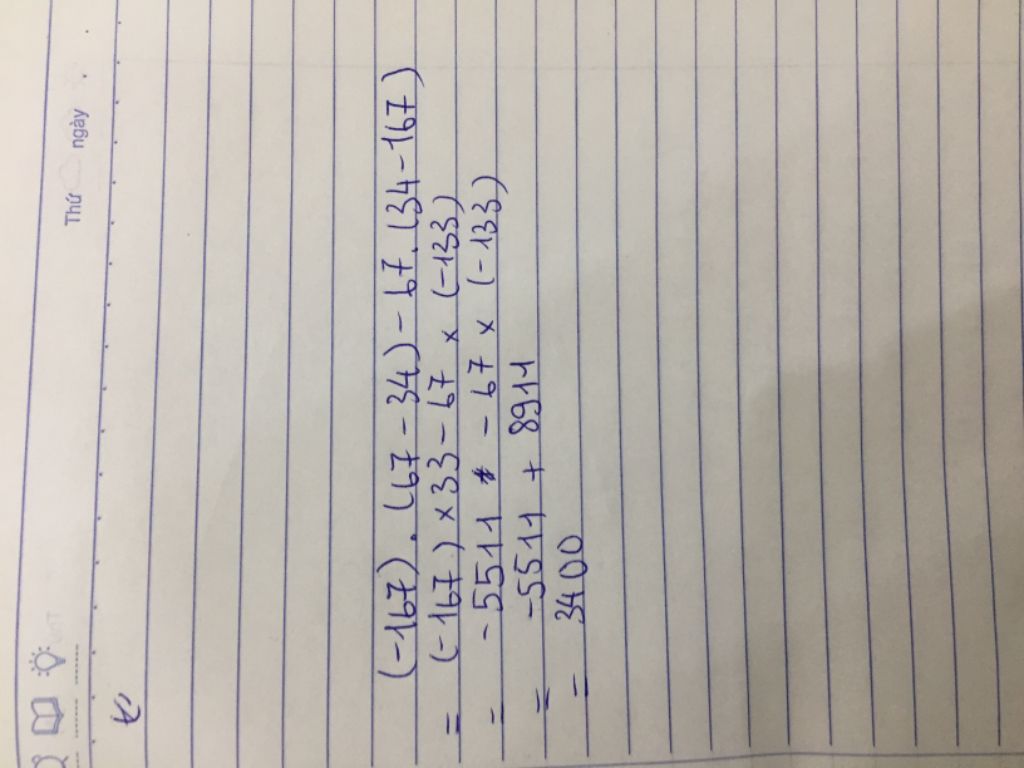 Thứ ngày
(-167).(67-34)-67.(34-167)
= (-167)×33-67 × (-133)
= -5511 - 67 × (-133)
= -5511 + 8911
= 3400